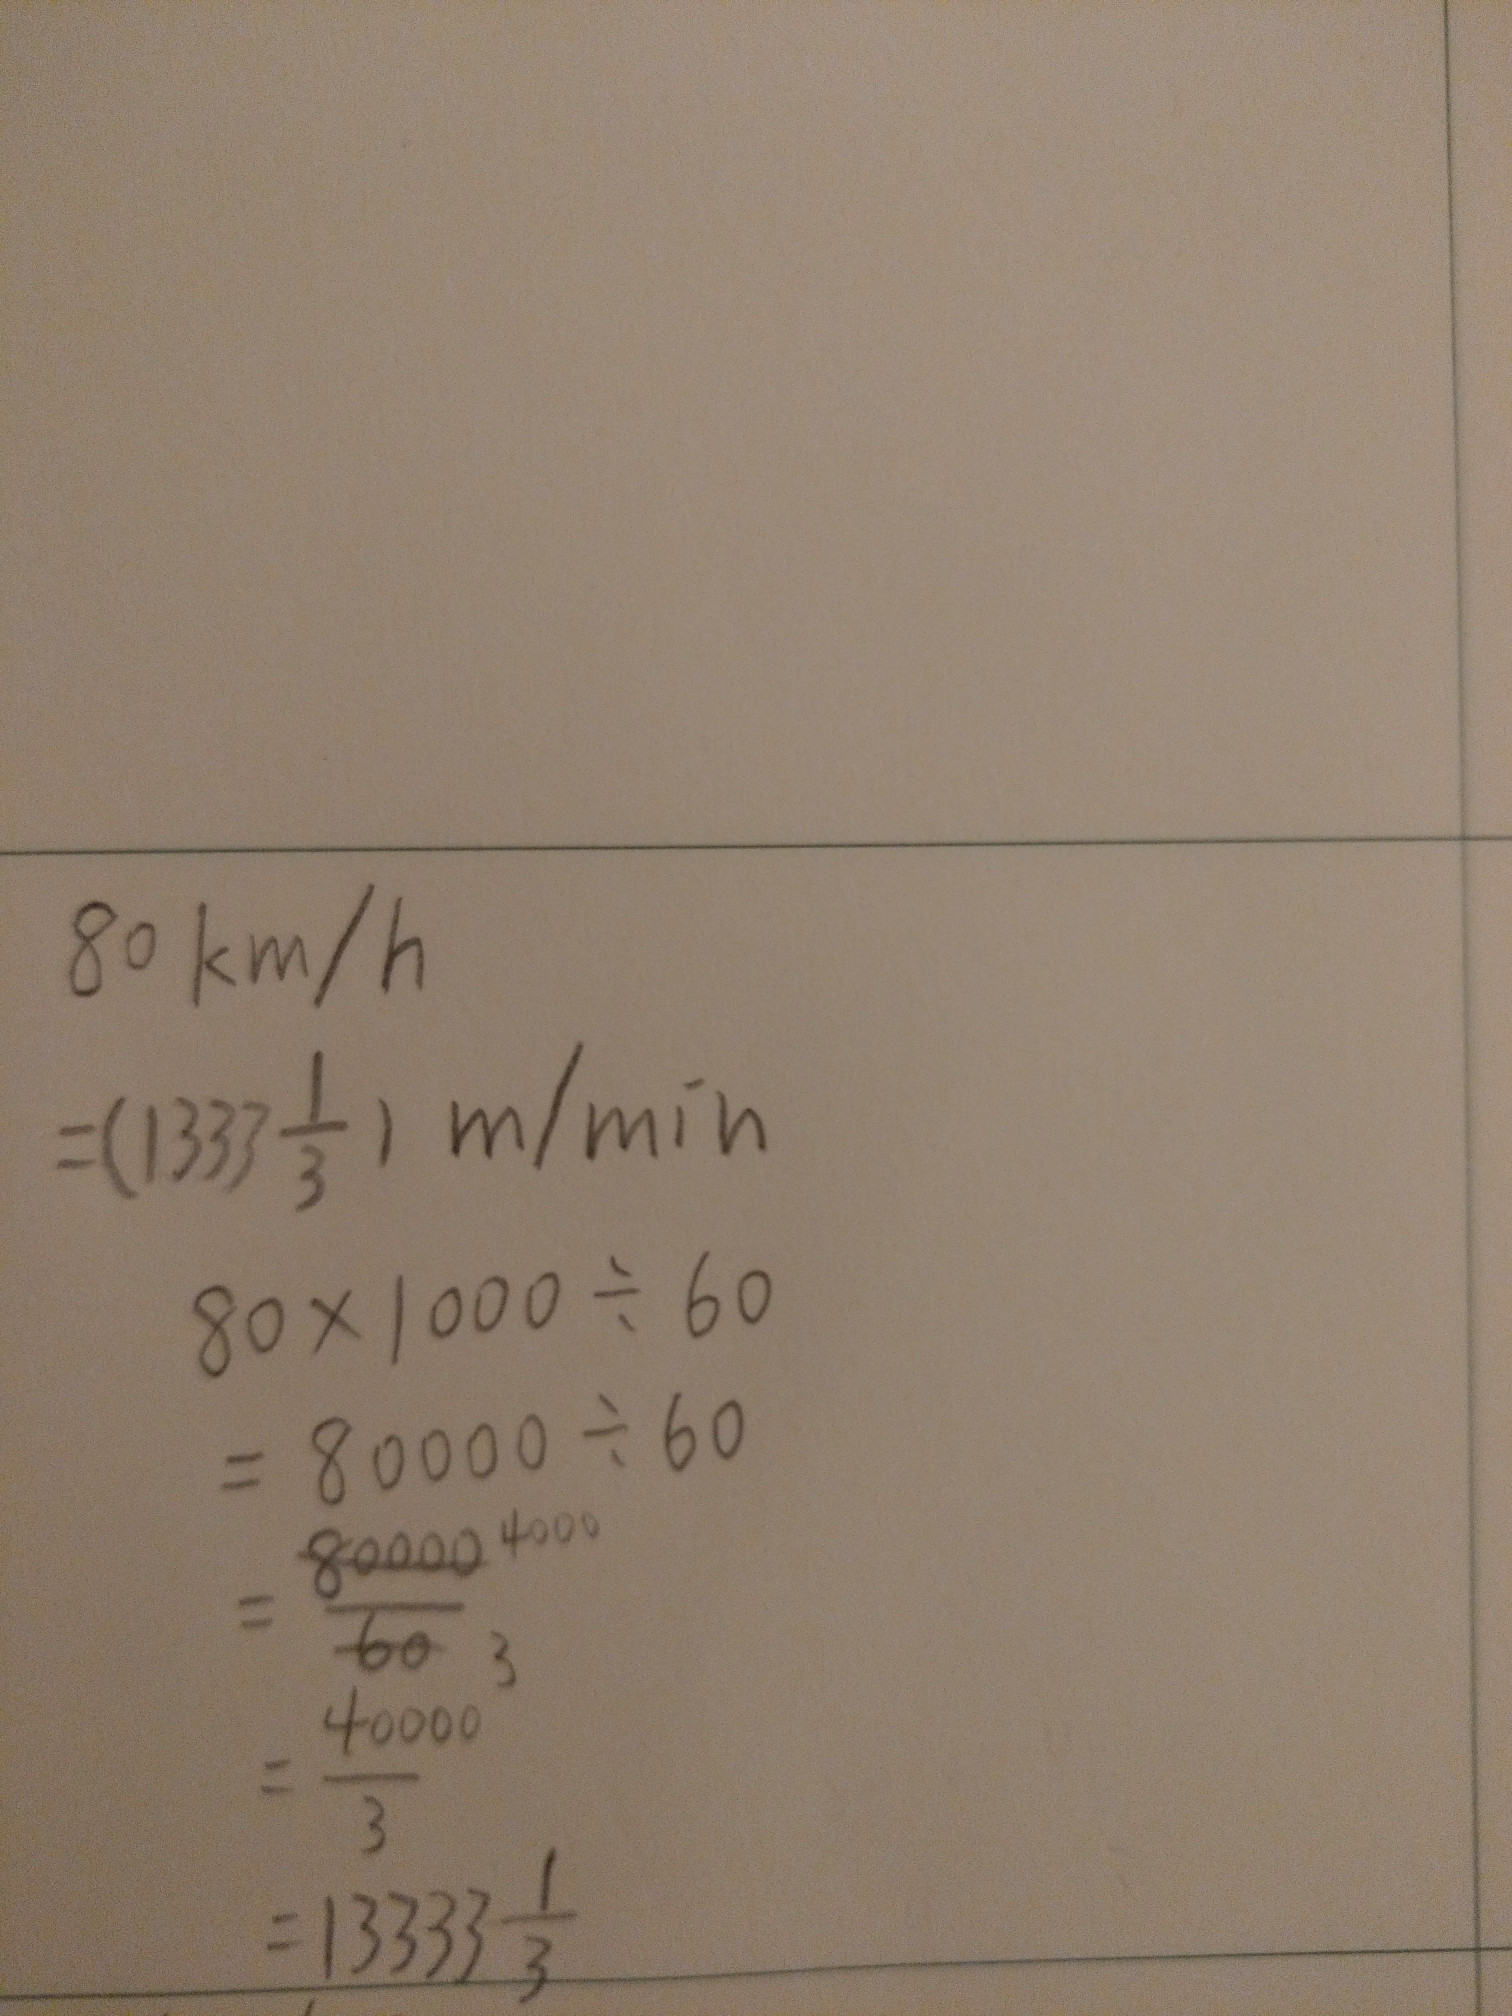 80 km/h
=(1333 1/3) m/min
80×1000÷60
= 80000÷60
= 80000/60 4000 3
= 40000/3
=13333 1/3